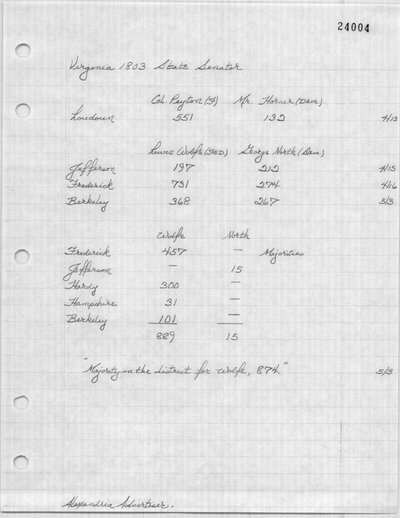 24004
Virginia 1803 State Senator
Col. Peyton (F) Mr. Horner (Dem)
Loudoun 551 132 4/13
Lewis Wolfe (FED) George North (Dem)
Jefferson 197 212 4/15
Frederick 731 274 4/16
Berkeley 368 267 5/3
Wolfe North
Frederick 457 — Majorities
Jefferson — 15
Hardy 300 —
Hampshire 31 —
Berkeley 101 —
889 15
"Majority in the district for Wolfe, 874." 5/3
Alexandria Advertiser.